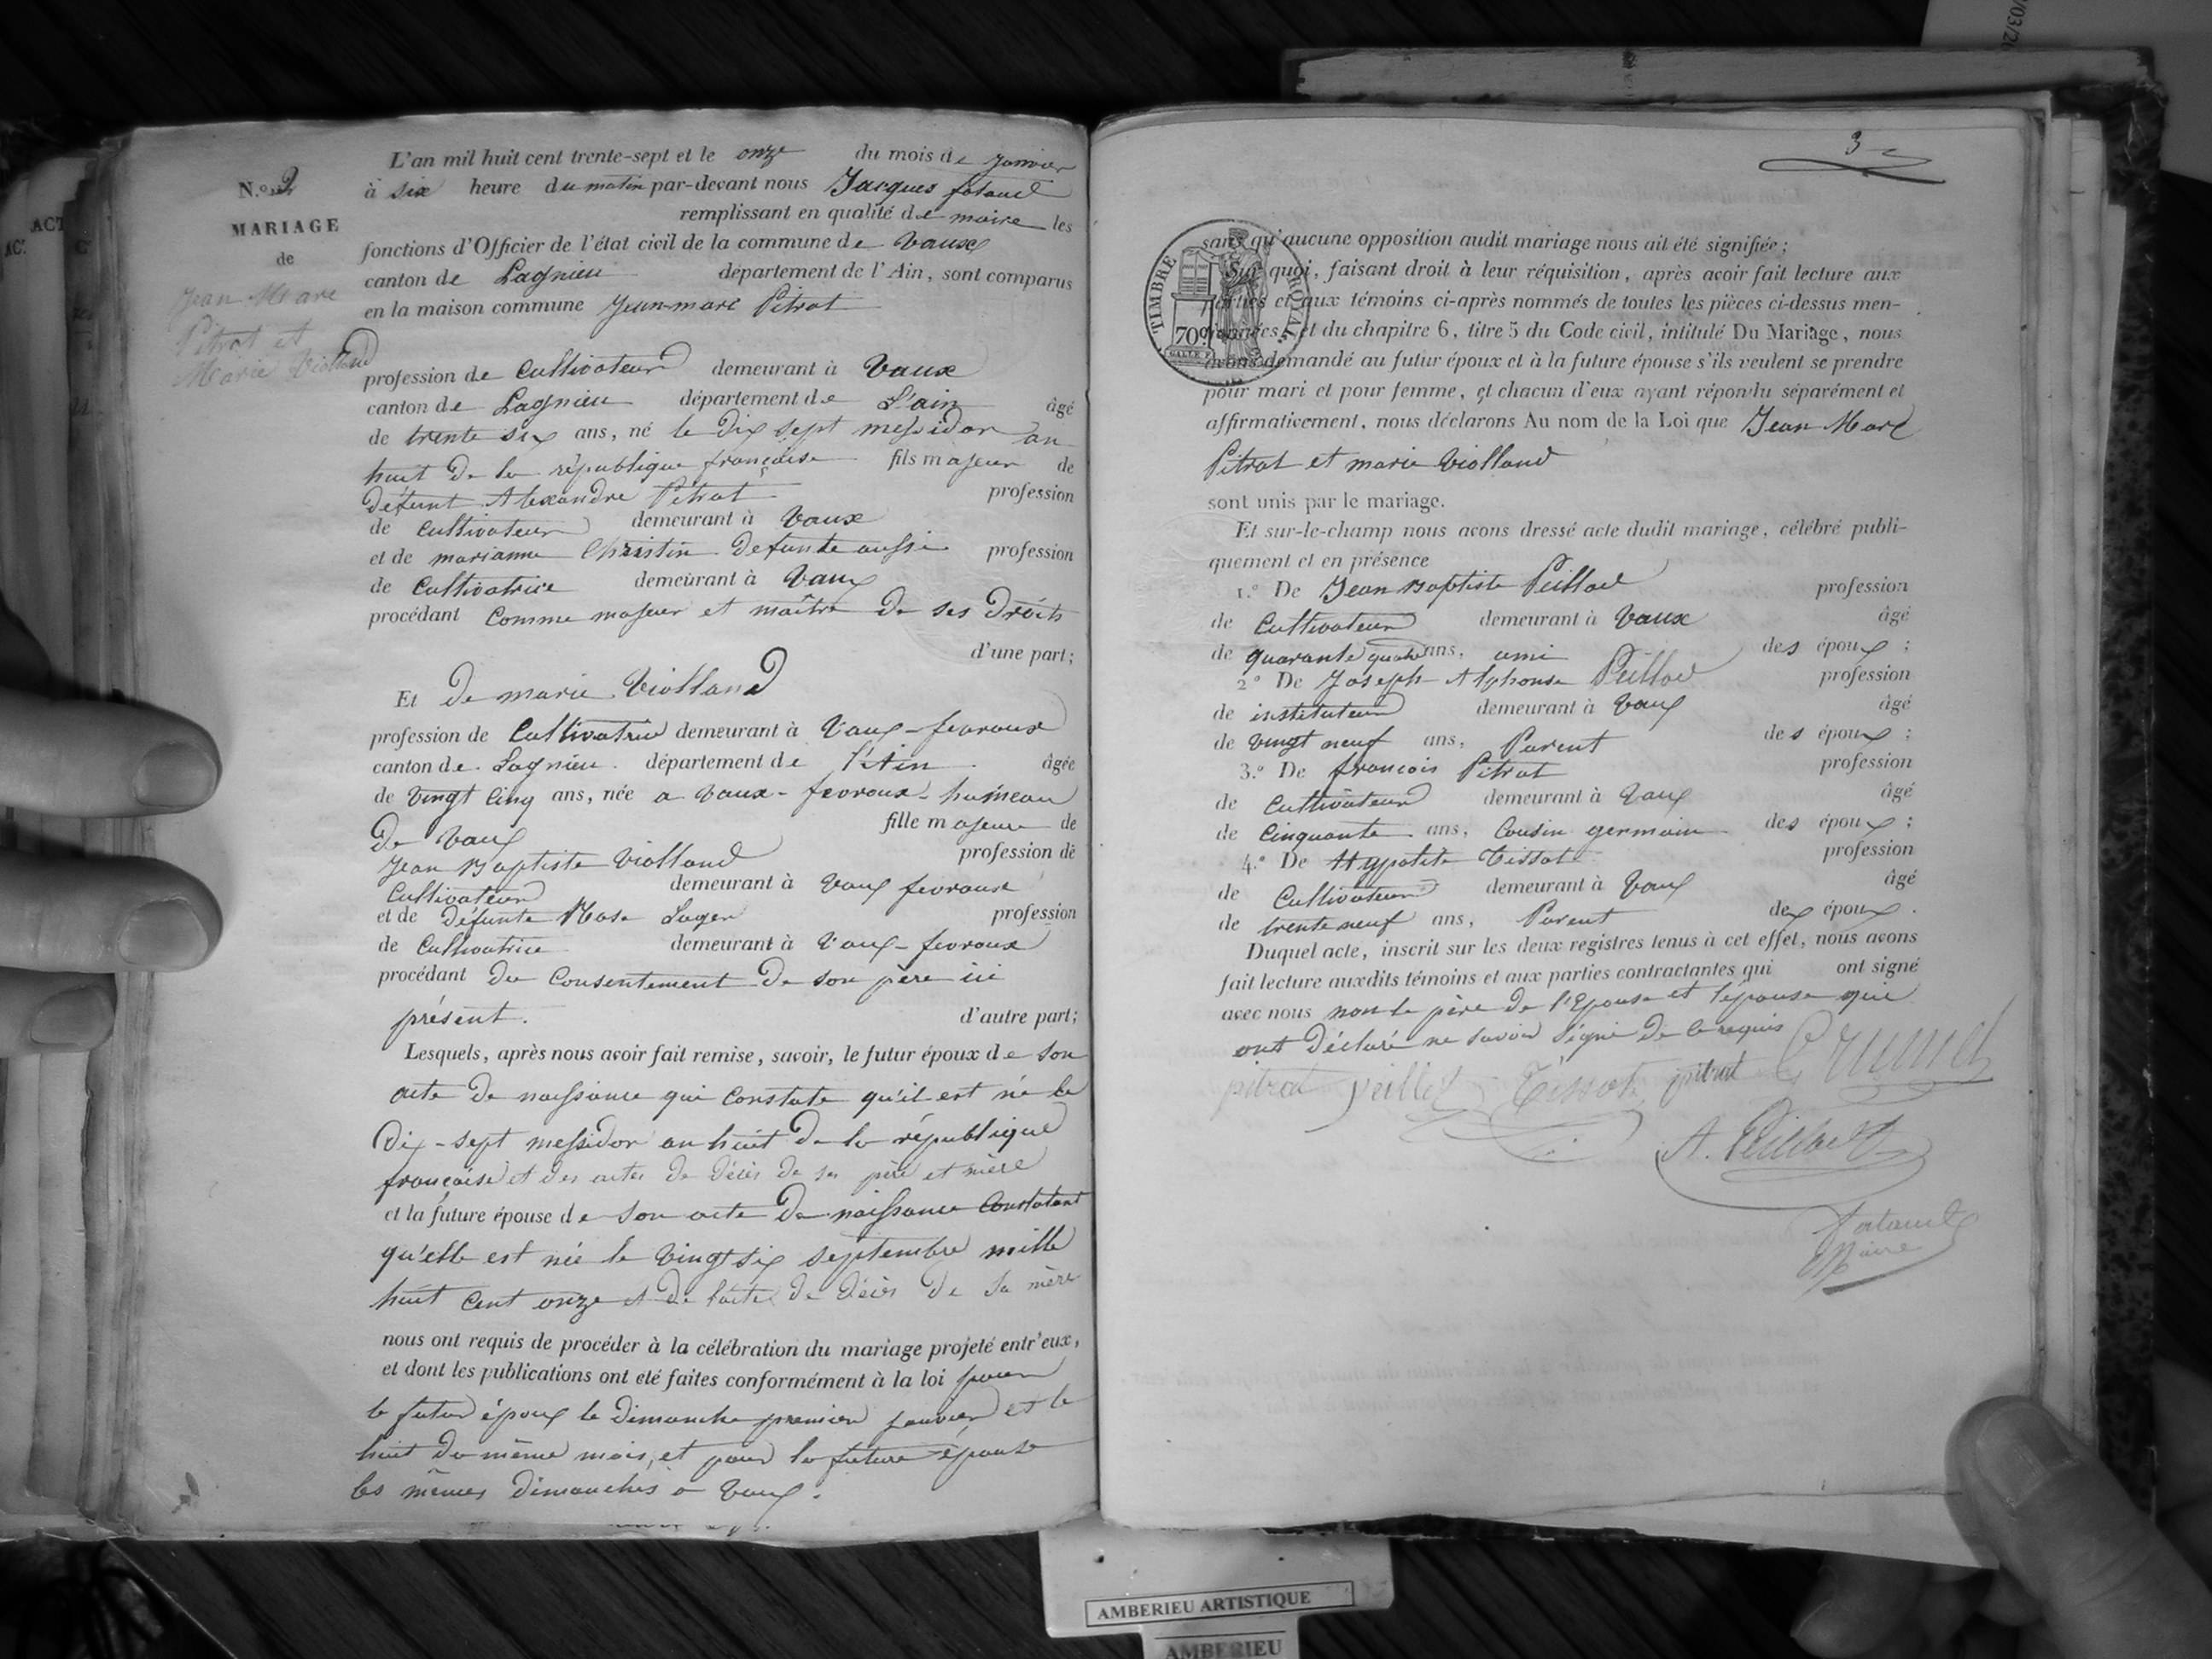 N.º 2
MARIAGE
de
Jean Marc
Pitrat et
Marie Violland
L'an mil huit cent trente-sept et le onze du mois de janvier
à six heure du matin par-devant nous Jacques
remplissant en qualité de maire les
fonctions d'Officier de l'état civil de la commune de Vaux
canton de Lagnieu département de l'Ain, sont comparus
en la maison commune Jean-marc Pitrat
profession de Cultivateur demeurant à Vaux
canton de Lagnieu département de L'ain âgé
de trente six ans, né le dix sept messidor an
huit de la république française fils majeur de
défunt Alexandre Pitrat profession
de Cultivateur demeurant à Vaux
et de marianne Christin defunte aussi profession
de Cultivatrice demeurant à Vaux
procédant Comme majeur et maître de ses droits
d'une part;
Et de marie Violland
profession de Cultivatrice demeurant à Vaux-fevroux
canton de Lagnieu département de l'Ain âgée
de Vingt Cinq ans, née a Vaux-fevroux-hameau
de Vaux fille majeure de
Jean Baptiste Violland profession de
Cultivateur demeurant à Vaux fevroux
et de défunte Rose profession
de Cultivatrice demeurant à Vaux-fevroux
procédant du Consentement de son père ici
présent. d'autre part;
Lesquels, après nous avoir fait remise, savoir, le futur époux de son
acte de naissance qui Constate qu'il est né le
Dix-sept messidor an huit de la république
française et des actes de décès de ses père et mère
et la future épouse de son acte de naissance Constatant
qu'elle est née le Vingt six septembre mille
huit Cent onze et de l'acte de décès de sa mère
nous ont requis de procéder à la célébration du mariage projeté entr'eux,
et dont les publications ont été faites conformément à la loi pour
le futur époux le dimanche premier janvier et le
huit du même mois, et pour la future épouse
les mêmes dimanches a Vaux.
3
TIMBRE ROYAL
70
sans qu'aucune opposition audit mariage nous ait été signifiée;
Sur quoi, faisant droit à leur réquisition, après avoir fait lecture aux
parties et aux témoins ci-après nommés de toutes les pièces ci-dessus men-
tionnées, et du chapitre 6, titre 5 du Code civil, intitulé Du Mariage, nous
avons demandé au futur époux et à la future épouse s'ils veulent se prendre
pour mari et pour femme, et chacun d'eux ayant répondu séparément et
affirmativement, nous déclarons Au nom de la Loi que Jean Marc
Pitrat et marie Violland
sont unis par le mariage.
Et sur-le-champ nous avons dressé acte dudit mariage, célébré publi-
quement et en présence
1.º De Jean Baptiste Peillod profession
de Cultivateur demeurant à Vaux âgé
de quarante quatre ans, ami des époux;
2º De Joseph Alphonse Peillod profession
de instituteur demeurant à Vaux âgé
de vingt neuf ans, Parent des époux;
3.º De françois Pitrat profession
de Cultivateur demeurant à Vaux âgé
de Cinquante ans, Cousin germain des époux;
4.º De Hypolite Tissot profession
de Cultivateur demeurant à Vaux âgé
de trente neuf ans, Parent des époux.
Duquel acte, inscrit sur les deux registres tenus à cet effet, nous avons
fait lecture auxdits témoins et aux parties contractantes qui ont signé
avec nous non le père de l'Epouse et l'épouse qui
ont déclaré ne savoir signé de ce requis
pitrat peillod Tissot pitrat
A. Peillod
Maire
AMBERIEU ARTISTIQUE
AMBERIEU